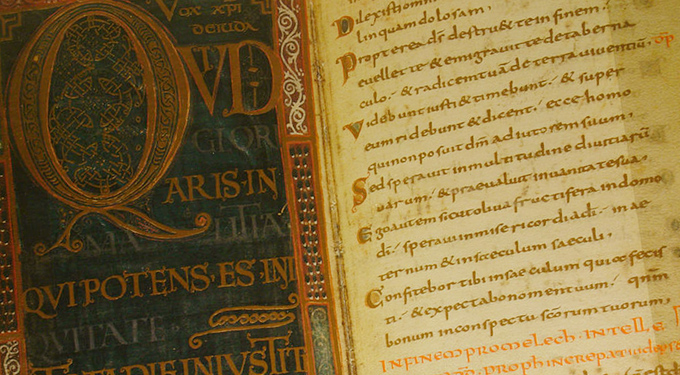 DEIUDA
QVID
GLORI
ARIS·IN
MALITIA
QVIPOTENS·ES·INI
QVITATE
TOTADIEINIVSTIT
Dilexisti omnia
linguam dolosam,
Propterea dš destruet te in finem·
euellet te & emigrauit te de taberna
culo· & radicem tuā de terra uiuentiū,
Videbunt iusti & timebunt· & super
eum ridebunt & dicent· ecce homo
qui non posuit dm̄ adiutorem suum,
Sed sperauit in multitudine diuitiarū
suarum· & praeualuit in uanitate sua,
Ego autem sicut oliua fructifera in domo
dī· speraui in misericordia dī· in ae
ternum & in saeculum saeculi,
Confitebor tibi in saeculum quia fecis
ti· & expectabo nomen tuum· qm̄
bonum in conspectu scōrum tuorum,
INFINEM PRO MELECH·INTELLE